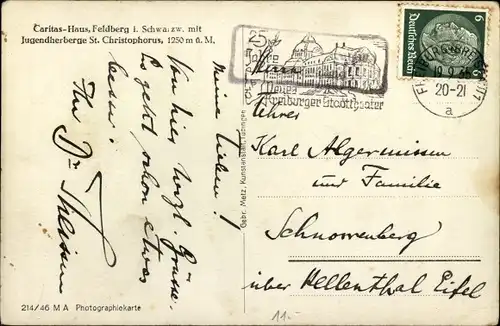 Caritas-Haus, Feldberg i. Schwarzw. mit
Jugendherberge St. Christophorus, 1250 m ü. M.
Meine Lieben!
Von hier herzl. Grüsse.
Es geht schon etwas
besser.
Ihr Dr.
Gebr. Metz, Kunstanstalt, Tübingen
214/46 M A Photographiekarte
25
Jahre
Neues
Freiburger Stadttheater
Deutsches Reich
6 6
FREIBURG (BREISGAU) 1
20-21
a
Herrn
Lehrer
Karl Algermissen
und Familie
Schnorrenberg
über Hellenthal Eifel
11.-